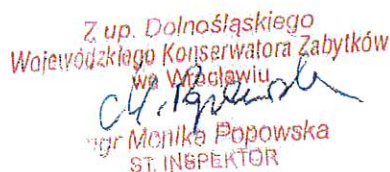 Z up. Dolnośląskiego
Wojewódzkiego Konserwatora Zabytków
we Wrocławiu
mgr Monika Popowska
ST. INSPEKTOR